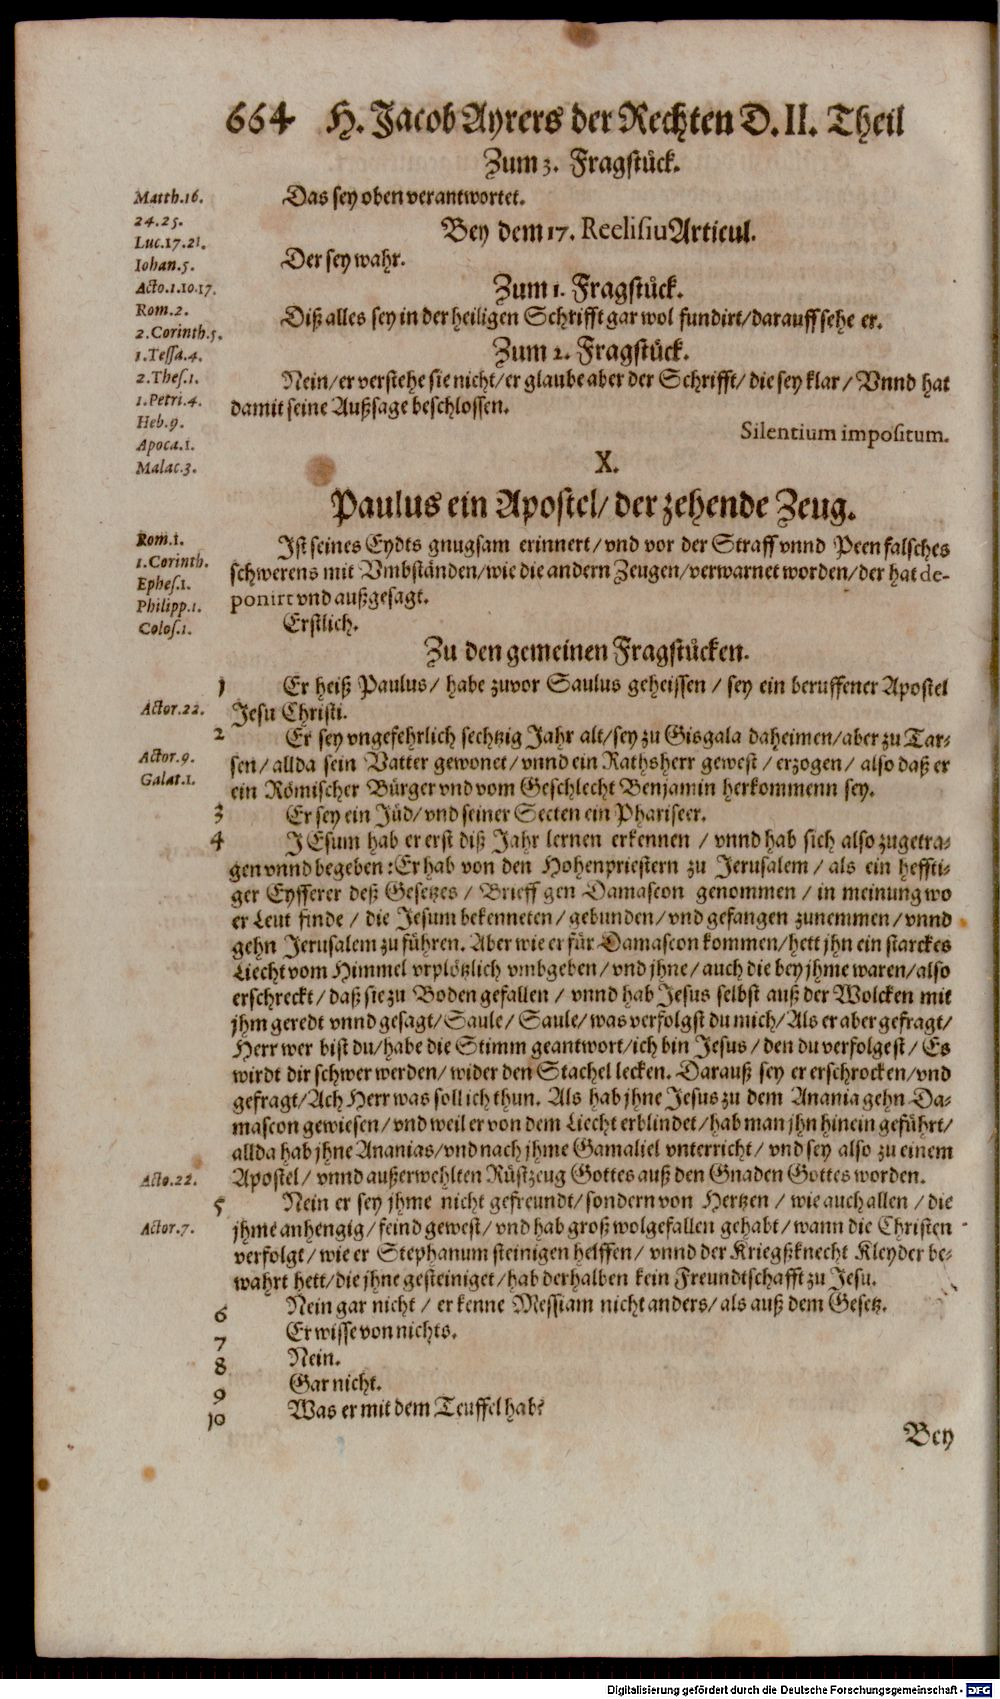 664 H. Jacob Ayrers der Rechten D. II. Theil
Zum 3. Fragstück.
Matth.16.
24.25.
Luc.17.21.
Iohan.5.
Acto.1.10.17.
Rom.2.
2.Corinth.5.
1.Tessa.4.
2.Thes.1.
1.Petri.4.
Heb.9.
Apoca.1.
Malac.3.
Das sey oben verantwortet.
Bey dem 17. Reelisiu Articul.
Der sey wahr.
Zum 1. Fragstück.
Diß alles sey in der heiligen Schrifft gar wol fundirt/darauff sehe er.
Zum 2. Fragstück.
Nein/er verstehe sie nicht/er glaube aber der Schrifft/ die sey klar/ Vnnd hat
damit seine Außsage beschlossen.
Silentium impositum.
X.
Paulus ein Apostel/ der zehende Zeug.
Rom.1.
1.Corinth.
Ephes.1.
Philipp.1.
Colos.1.
Ist seines Eydts gnugsam erinnert/vnd vor der Straff vnnd Peen falsches
schwerens mit Vmbständen/wie die andern Zeugen/verwarnet worden/der hat de-
ponirt vnd außgesagt.
Erstlich.
Zu den gemeinen Fragstücken.
1 Er heiß Paulus/ habe zuvor Saulus geheissen/ sey ein beruffener Apostel
Actor.22. Jesu Christi.
2 Er sey vngefehrlich sechtzig Jahr alt/sey zu Gisgala daheimen/aber zu Tar-
Actor.9. sen/ allda sein Vatter gewonet/ vnnd ein Rathsherr gewest/ erzogen/ also daß er
Galat.1. ein Römischer Bürger vnd vom Geschlecht Benjamin herkommenn sey.
3 Er sey ein Jüd/vnd seiner Secten ein Phariseer.
4 JEsum hab er erst diß Jahr lernen erkennen / vnnd hab sich also zugetra-
gen vnnd begeben: Er hab von den Hohenpriestern zu Jerusalem/ als ein heffti-
ger Eyfferer deß Gesetzes/ Brieff gen Damascon genommen/ in meinung wo
er Leut finde/ die Jesum bekenneten/ gebunden/ vnd gefangen zunemmen/ vnnd
gehn Jerusalem zu führen. Aber wie er für Damascon kommen/hett jhn ein starckes
Liecht vom Himmel vrplötzlich vmbgeben/ vnd jhne/ auch die bey jhme waren/also
erschreckt/ daß sie zu Boden gefallen/ vnnd hab Jesus selbst auß der Wolcken mit
jhm geredt vnnd gesagt/Saule/ Saule/was verfolgst du mich/Als er aber gefragt/
Herr wer bist du/habe die Stimm geantwort/ich bin Jesus/ den du verfolgest/ Es
wirdt dir schwer werden/ wider den Stachel lecken. Darauß sey er erschrocken/vnd
gefragt/Ach Herr was soll ich thun. Als hab jhne Jesus zu dem Anania gehn Da-
mascon gewiesen/ vnd weil er von dem Liecht erblindet/ hab man jhn hinein geführt/
allda hab jhne Ananias/vnd nach jhme Gamaliel vnterricht/ vnd sey also zu einem
Acto.22. Apostel/ vnnd außerwehlten Rüstzeug Gottes auß den Gnaden Gottes worden.
5 Nein er sey jhme nicht gefreundt/sondern von Hertzen/ wie auch allen/ die
Actor.7. jhme anhengig/feind gewest/ vnd hab groß wolgefallen gehabt/wann die Christen
verfolgt/ wie er Stephanum steinigen helffen/ vnnd der Kriegßknecht Kleyder be-
wahrt hett/die jhne gesteiniget/hab derhalben kein Freundtschafft zu Jesu.
6 Nein gar nicht/ er kenne Messiam nicht anders/als auß dem Gesetz.
7 Er wisse von nichts.
8 Nein.
9 Gar nicht.
10 Was er mit dem Teuffel hab?
Bey
Digitalisierung gefördert durch die Deutsche Forschungsgemeinschaft - DFG